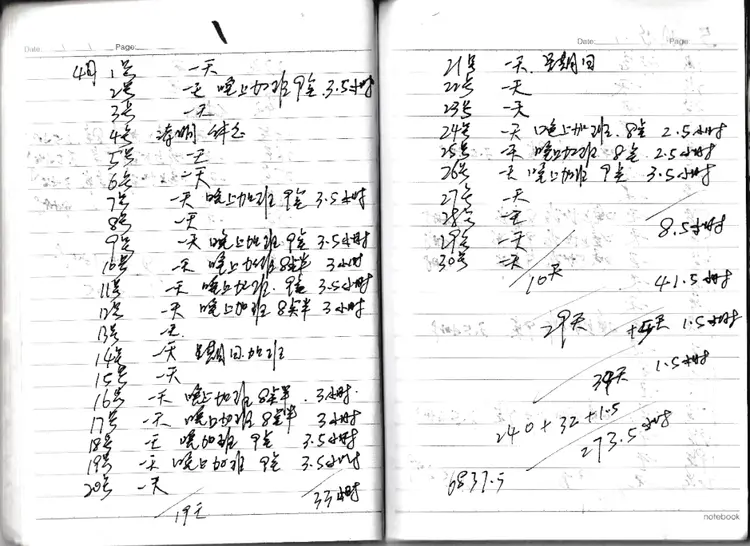 Date: Page:
4月 1号 一天
2号 一天 晚上加班 9点 3.5小时
3号 一天
4号 清明 休息
5号 一天
6号 一天
7号 一天 晚上加班 9点 3.5小时
8号 一天
9号 一天 晚上加班 9点 3.5小时
10号 一天 晚上加班 8点半 3小时
11号 一天 晚上加班. 9点 3.5小时
12号 一天 晚上加班 8点半 3小时
13号 一天
14号 一天 星期日加班
15号 一天
16号 一天 晚上加班 8点半. 3小时.
17号 一天 晚上加班 8点半 3小时
18号 一天 晚加班 9点 3.5小时
19号 一天 晚上加班 9点. 3.5小时
20号 一天
19天 33小时
Date: Page:
21号 一天. 星期日
22号 一天
23号 一天
24号 一天 晚上加班. 8点 2.5小时
25号 一天 晚上加班 8点 2.5小时
26号 一天 晚上加班 9点 3.5小时
27号 一天
28号 一天
29号 一天 8.5小时
30号 一天
10天 41.5小时
29天 + 天 1.5小时
34天 1.5小时
240+32+1.5
273.5小时
6837.5
notebook